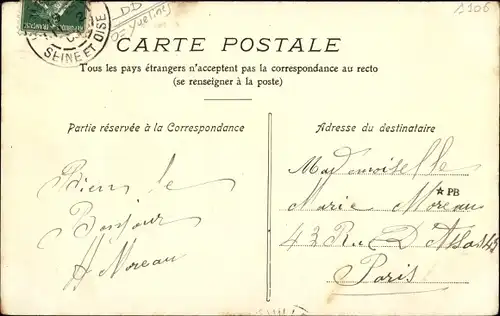 5106
DD
Yvelines
SEINE ET OISE
CARTE POSTALE
Tous les pays étrangers n'acceptent pas la correspondance au recto
(se renseigner à la poste)
Partie réservée à la Correspondance
Adresse du destinataire
Bien le
Bonjour
H Moreau
Mademoiselle
Marie Moreau
★PB
43 Rue D'Assas 43
Paris